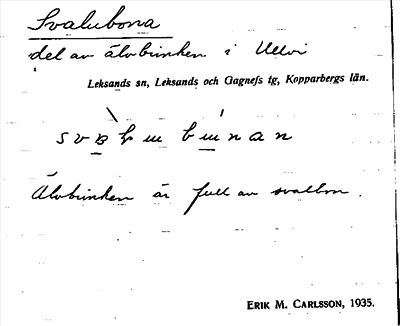 Svalubona
del av älvbrinken i Ullvi
Leksands sn, Leksands och Gagnefs tg, Kopparbergs län.
Älvbrinken är full av svalbon.
ERIK M. CARLSSON, 1935.